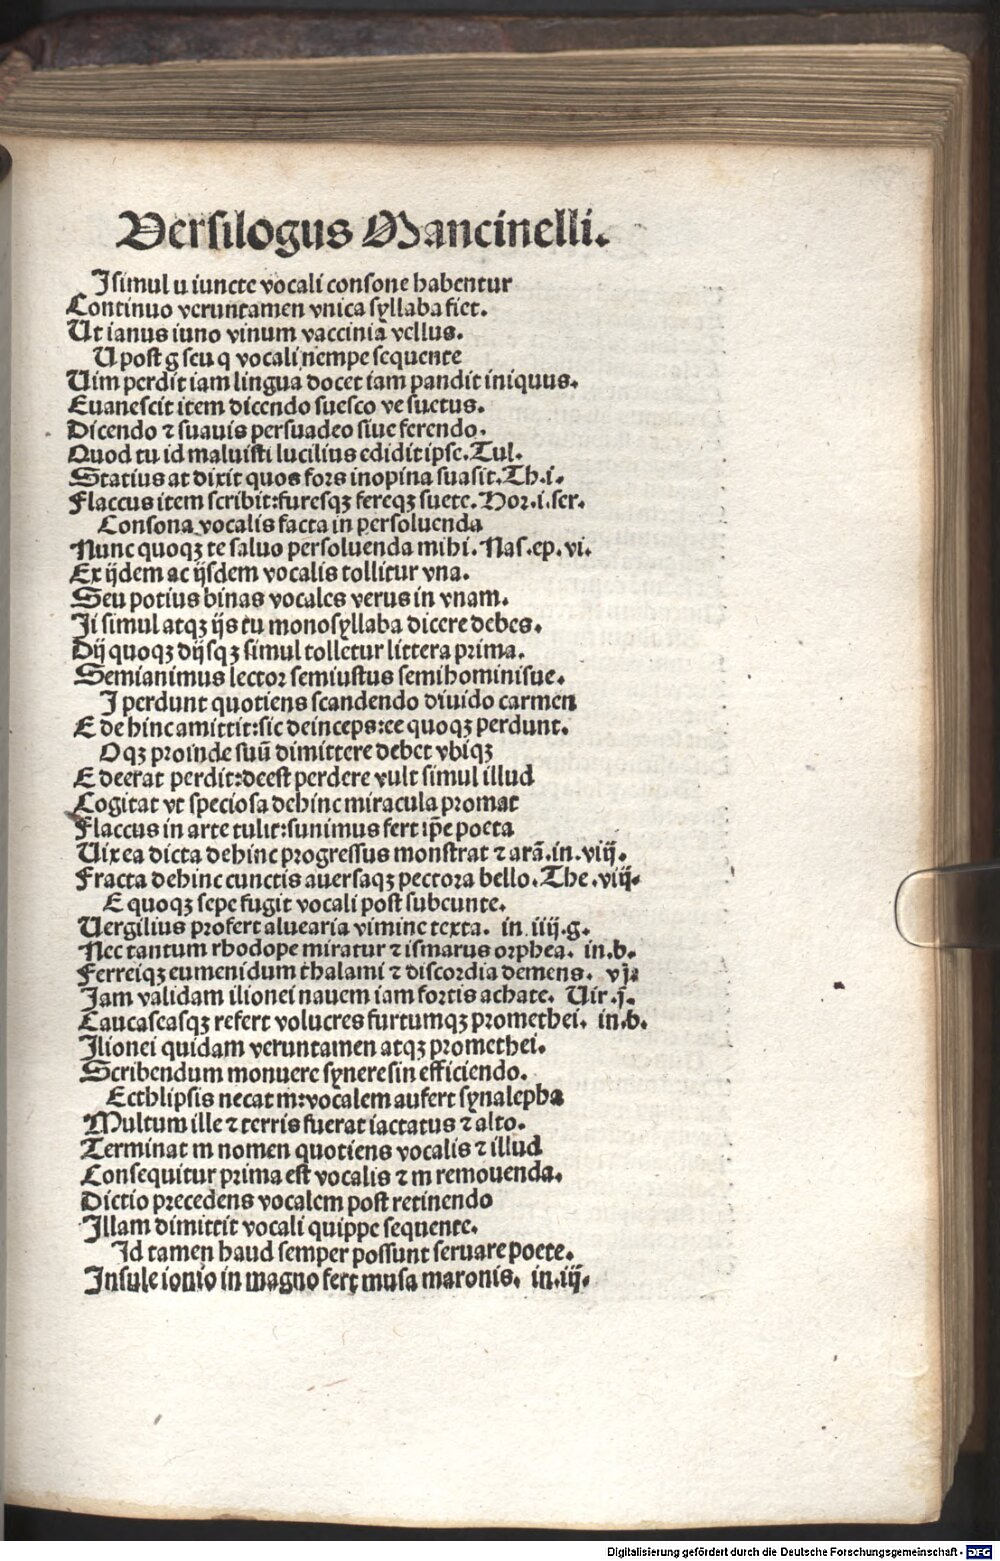 Versilogus Mancinelli.
I simul u iuncte vocali consone habentur
Continuo veruntamen vnica syllaba fiet.
Ut ianus iuno vinum vaccinia vellus.
U post g seu q vocali nempe sequente
Uim perdit iam lingua docet iam pandit iniquus.
Euanescit item dicendo suesco ve suetus.
Dicendo ⁊ suauis persuadeo siue ferendo.
Quod tu id maluisti lucilius edidit ipse. Tul.
Statius at dixit quos fors inopina suasit. Th.i.
Flaccus item scribit: furesqꝫ fereqꝫ suete. Hor.i.ser.
Consona vocalis facta in persoluenda
Nunc quoqꝫ te saluo persoluenda mihi. Nas.ep.vi.
Ex ijdem ac ijsdem vocalis tollitur vna.
Seu potius binas vocales verus in vnam.
Ii simul atqꝫ ijs tu monosyllaba dicere debes.
Dij quoqꝫ dijsqꝫ simul tolletur littera prima.
Semianimus lector semiustus semihominisue.
I perdunt quotiens scandendo diuido carmen
E dehinc amittit: sic deinceps: ee quoqꝫ perdunt.
Oqꝫ proinde suū dimittere debet vbiqꝫ
E deerat perdit: deest perdere vult simul illud
Cogitat vt speciosa dehinc miracula promat
Flaccus in arte tulit: sunimus fert ip̄e poeta
Uix ea dicta dehinc progressus monstrat ⁊ arā.in.viij.
Fracta dehinc cunctis auersaqꝫ pectora bello. The.viij.
E quoqꝫ sepe fugit vocali post subeunte.
Uergilius profert aluearia vimine texta. in.iiij.g.
Nec tantum rhodope miratur ⁊ ismarus orphea. in.b.
Ferreiqꝫ eumenidum thalami ⁊ discordia demens. vj.
Iam validam ilionei nauem iam fortis achate. Uir.j.
Caucaseasqꝫ refert volucres furtumqꝫ promethei. in.b.
Ilionei quidam veruntamen atqꝫ promethei.
Scribendum monuere syneresin efficiendo.
Ecthlipsis necat m: vocalem aufert synalepha
Multum ille ⁊ terris fuerat iactatus ⁊ alto.
Terminat m nomen quotiens vocalis ⁊ illud
Consequitur prima est vocalis ⁊ m remouenda.
Dictio precedens vocalem post retinendo
Illam dimittit vocali quippe sequente.
Id tamen haud semper possunt seruare poete.
Insule ionio in magno fert musa maronis. in.iij.
Digitalisierung gefördert durch die Deutsche Forschungsgemeinschaft - DFG